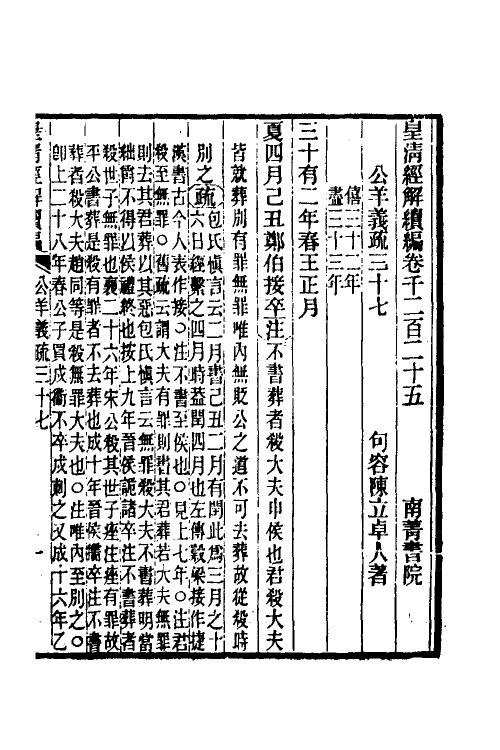 皇清經解續編卷千二百二十五　南菁書院
公羊義疏三十七　句容陳立卓人著
僖三十二年
盡三十三年
三十有二年春王正月
夏四月己丑鄭伯接卒注不書葬者殺大夫申侯也君殺大夫
皆就葬別有罪無罪唯內無貶公之道不可去葬故從殺時
別之疏包氏慎言云二月書己丑二月有閏此爲三月之十
六日經繫之四月時蓋閏四月也左傳穀梁接作捷
漢書古今人表作接○注不書至侯也○見上七年○注君
殺至無罪○舊疏云謂大夫有罪則書其君葬若大夫無罪
則去其君葬以其惡包氏慎言云無罪殺大夫不書葬明當
絀不得以侯禮終也按上九年晉侯詭諸卒注不書葬者
殺世子無罪也襄二十六年宋公殺其世子痤注痤有罪故
平公書葬是殺有罪者不去葬也成十年晉侯獳卒注不書
葬者殺大夫趙同等是殺無罪大夫也○注唯內至別之○
卽上二十八年春公子買戍衞不卒戍刺之又成十六年乙
皇清經解續編　公羊義疏三十七　一